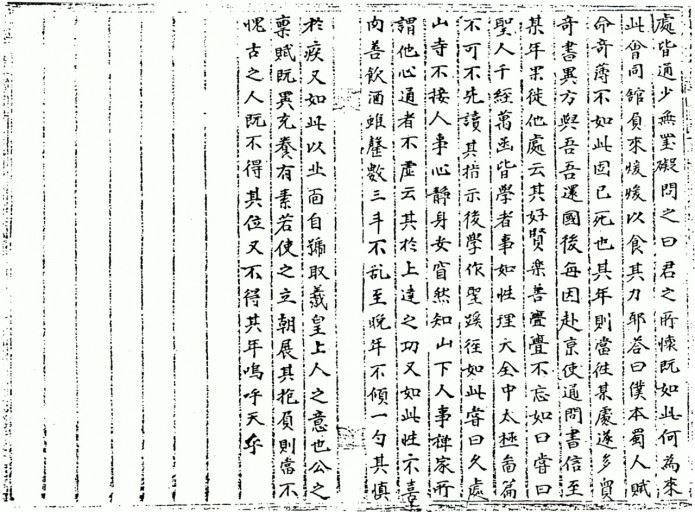 處皆通少無罣礙問之曰君之所懷既如此何為來
此會同舘負來煖煖以食其力耶答曰僕本蜀人賦
命奇薄不如此固已死也其年則當徃某處遂多買
奇書異方與吾吾還國後每因赴京使通問書信至
某年果徙他處云其好賢樂善亹亹不忘如曰嘗曰
聖人千經萬函皆學者事如性理大全中太極啚篇
不可不先讀其指示後學作聖蹊徑如此嘗曰久處
山寺不接人事心靜身安窅然知山下人事禪家所
謂他心通者不虛云其於上達之功又如此性不喜
肉善飲酒雖罄數三斗不乱至晚年不傾一勺其慎
於疾又如此以北囱自號取羲皇上人之意也公之
稟賦既異充養有素若使之立朝展其抱負則當不
愧古之人既不得其位又不得其年嗚呼天乎